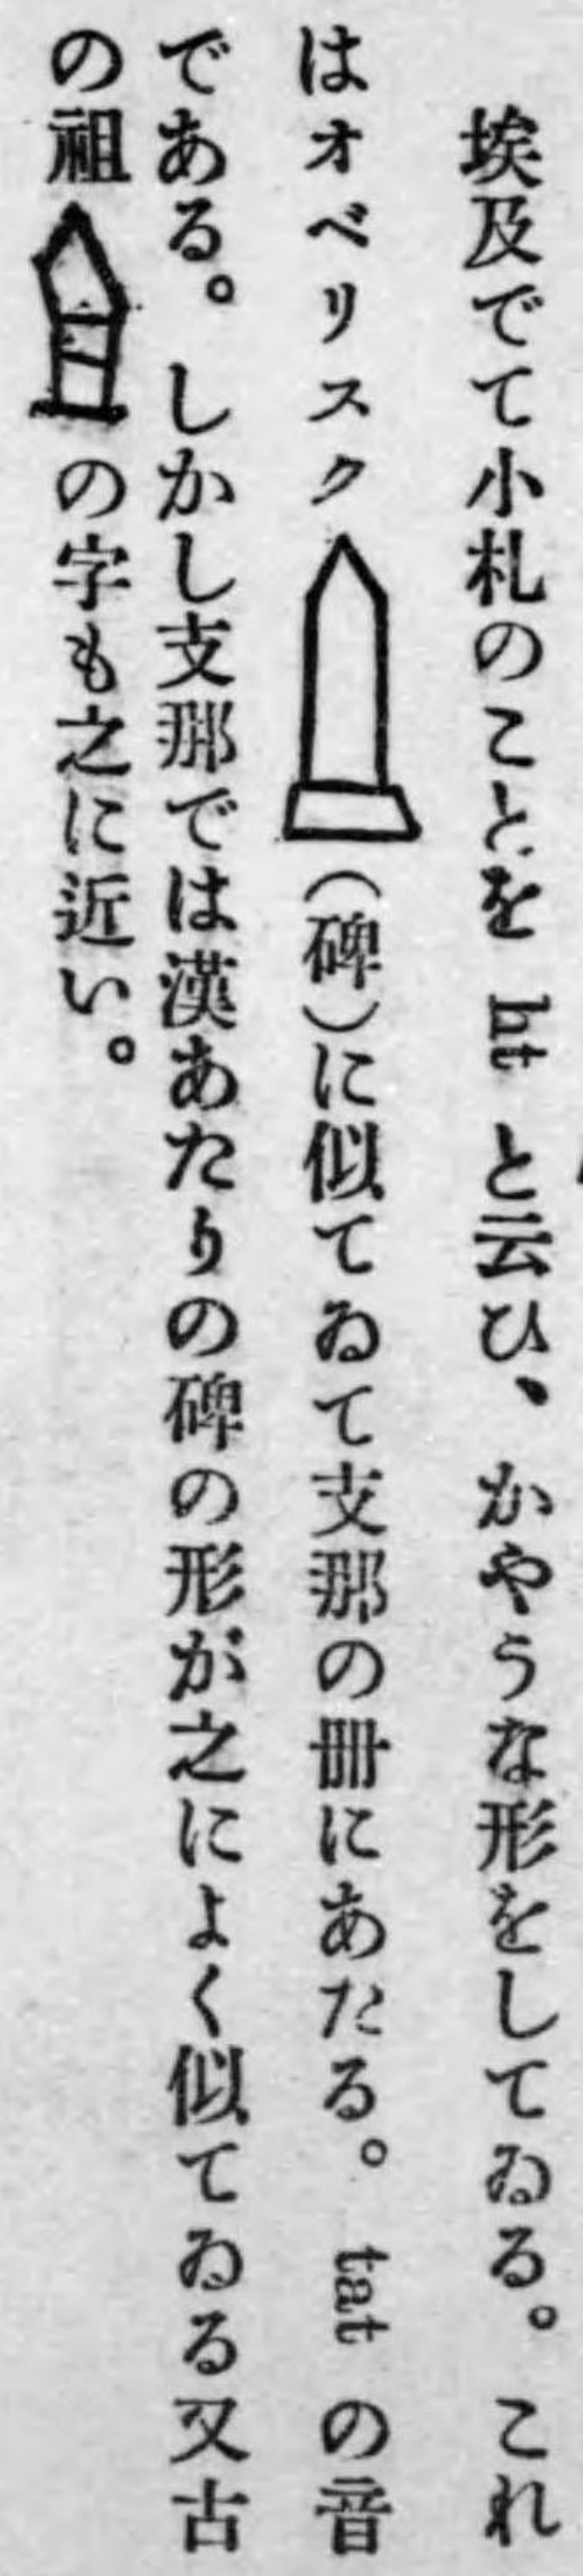 埃及でて小札のことを ht と云ひ、かやうな形をしてゐる。これ
はオベリスク(碑)に似てゐて支那の冊にあたる。tat の音
である。しかし支那では漢あたりの碑の形が之によく似てゐる又古
の祖の字も之に近い。